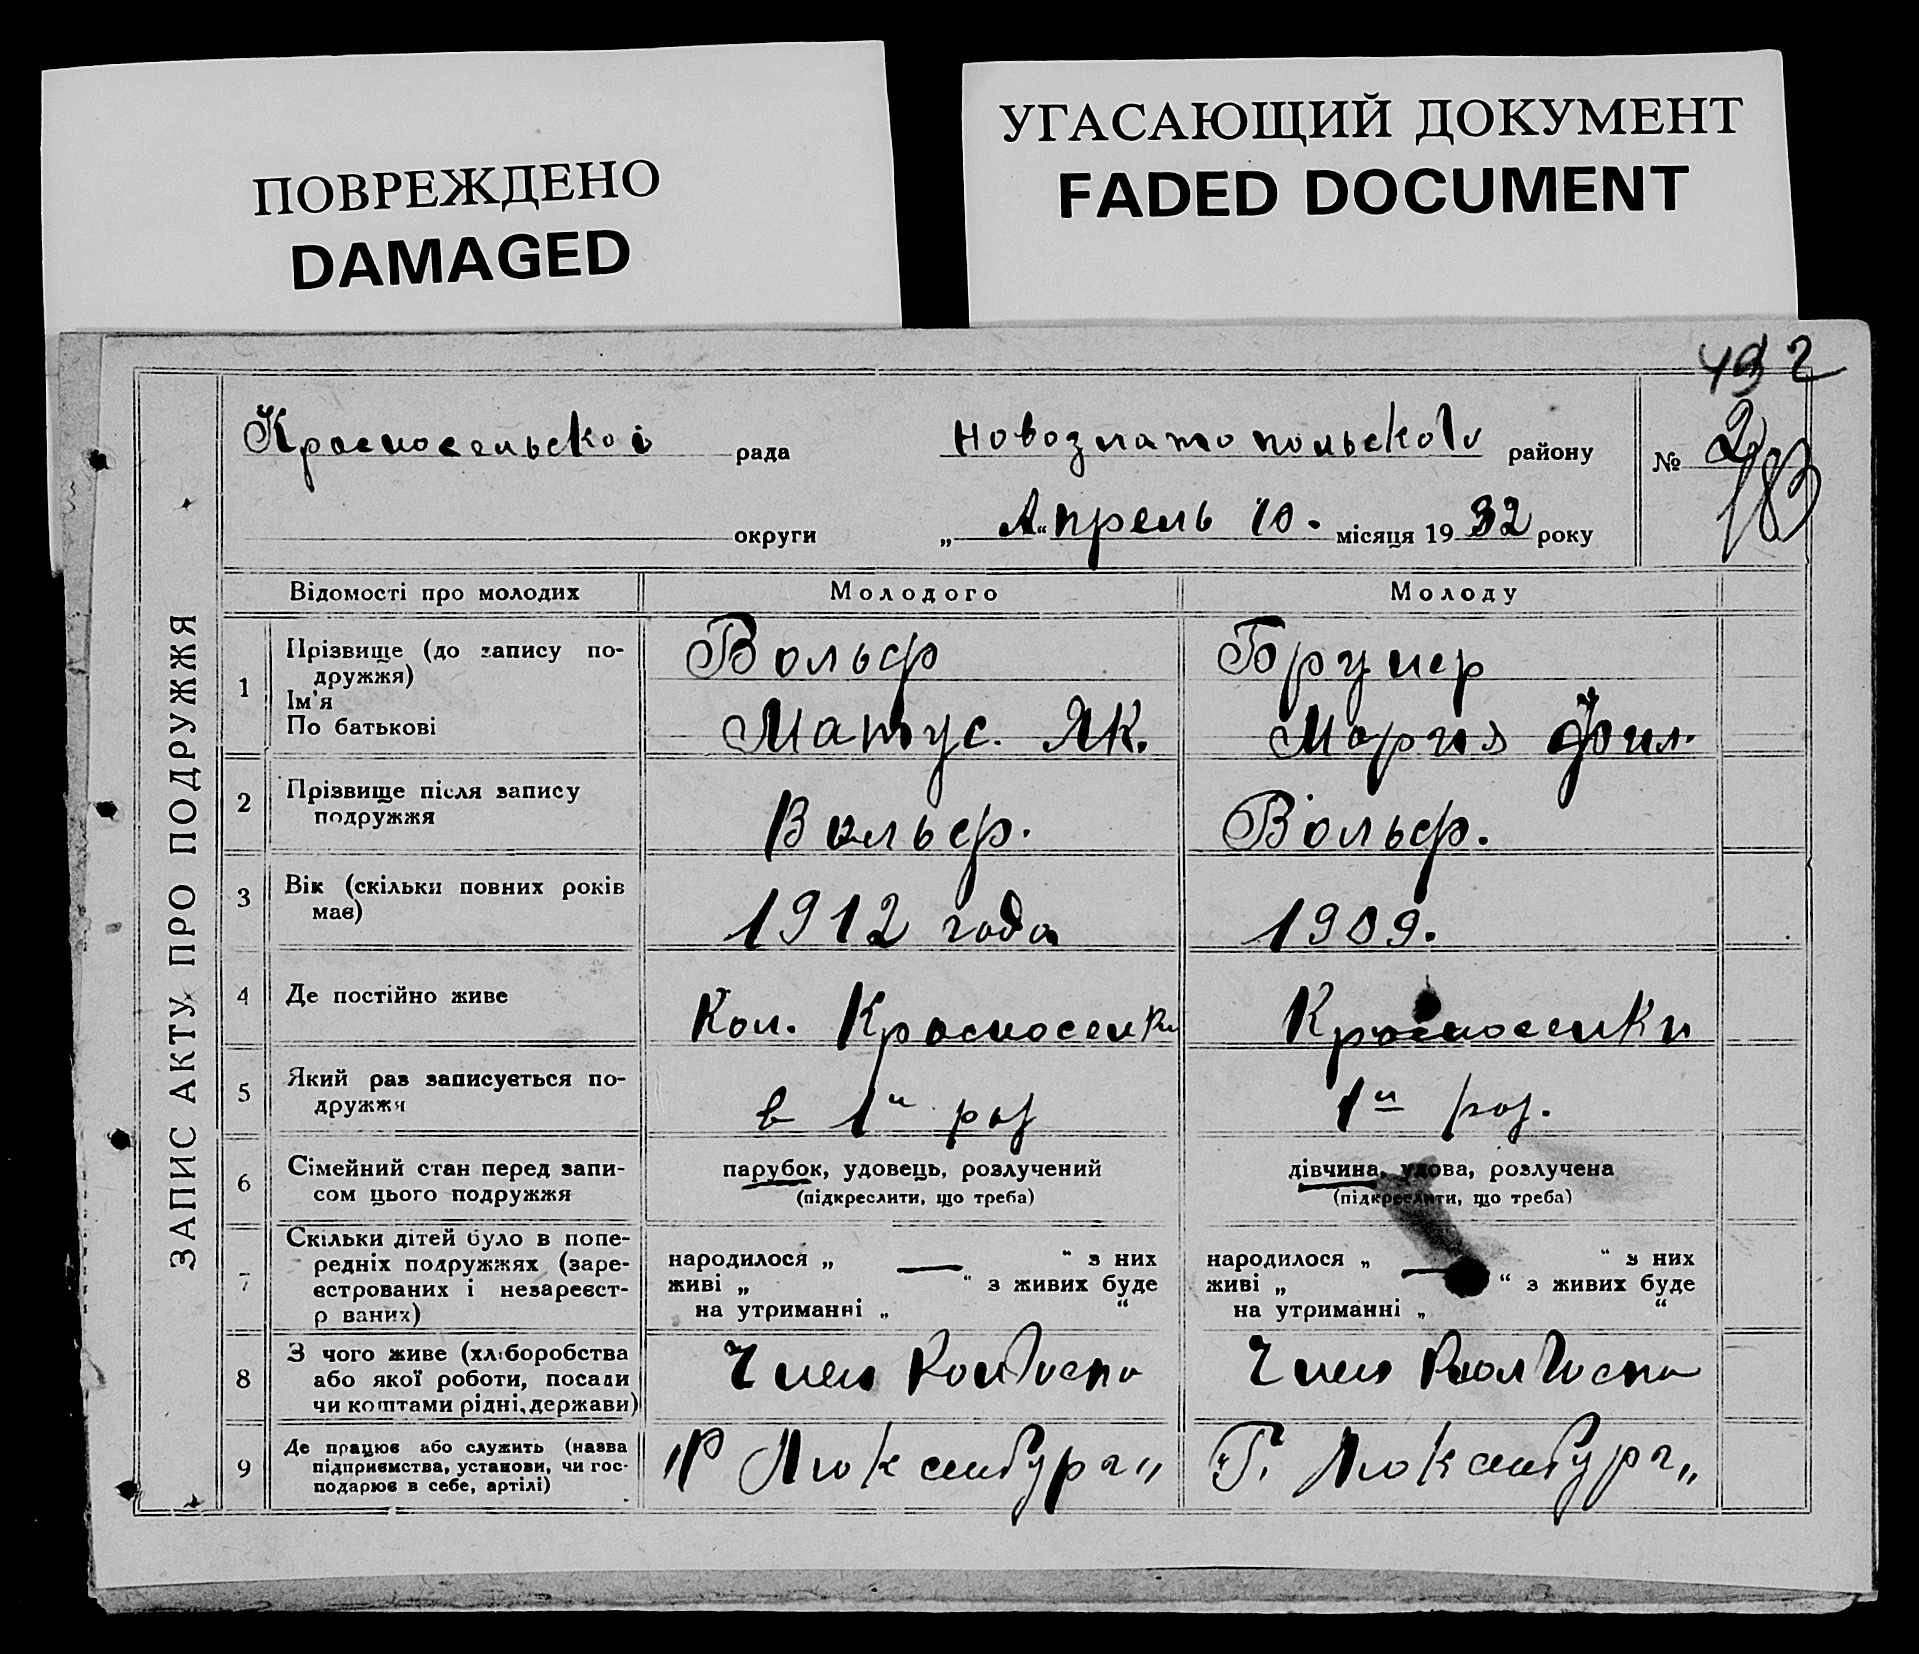 ПОВРЕЖДЕНО
DAMAGED
УГАСАЮЩИЙ ДОКУМЕНТ
FADED DOCUMENT
ЗАПИС АКТУ ПРО ПОДРУЖЖЯ
Красносельскоі рада Новозлатопольского району № 2
округи „Апрель“ 10. місяця 1932 року
Відомості про молодих Молодого Молоду
1 Прізвище (до запису по-
дружжя)
Ім'я
По батькові
Вольф
Матус. Як.
Брунер
Мария Фил.
2 Прізвище після запису
подружжя
Вольф.
Вольф.
3 Вік (скільки повних років
має)
1912 года
1909.
4 Де постійно живе
Кол. Красноселки
Красноселки
5 Який раз записується по-
дружжя
в 1й раз
1й раз.
6 Сімейний стан перед запи-
сом цього подружжя
парубок, удовець, розлучений
(підкреслити, що треба)
дівчина, удова, розлучена
(підкреслити, що треба)
7 Скільки дітей було в попе-
редніх подружжях (заре-
єстрованих і незареєст-
р ваних)
народилося „ — “ з них
живі „ “ з живих буде
на утриманні „ “
народилося „ — “ з них
живі „ “ з живих буде
на утриманні „ “
8 З чого живе (хліборобства
або якої роботи, посади
чи коштами рідні, держави)
Член Колгоспа
Член Колгоспа
9 Де працює або служить (назва
підприємства, установи, чи гос-
подарює в себе, артілі)
„Р Люксембург„
Люксембург„